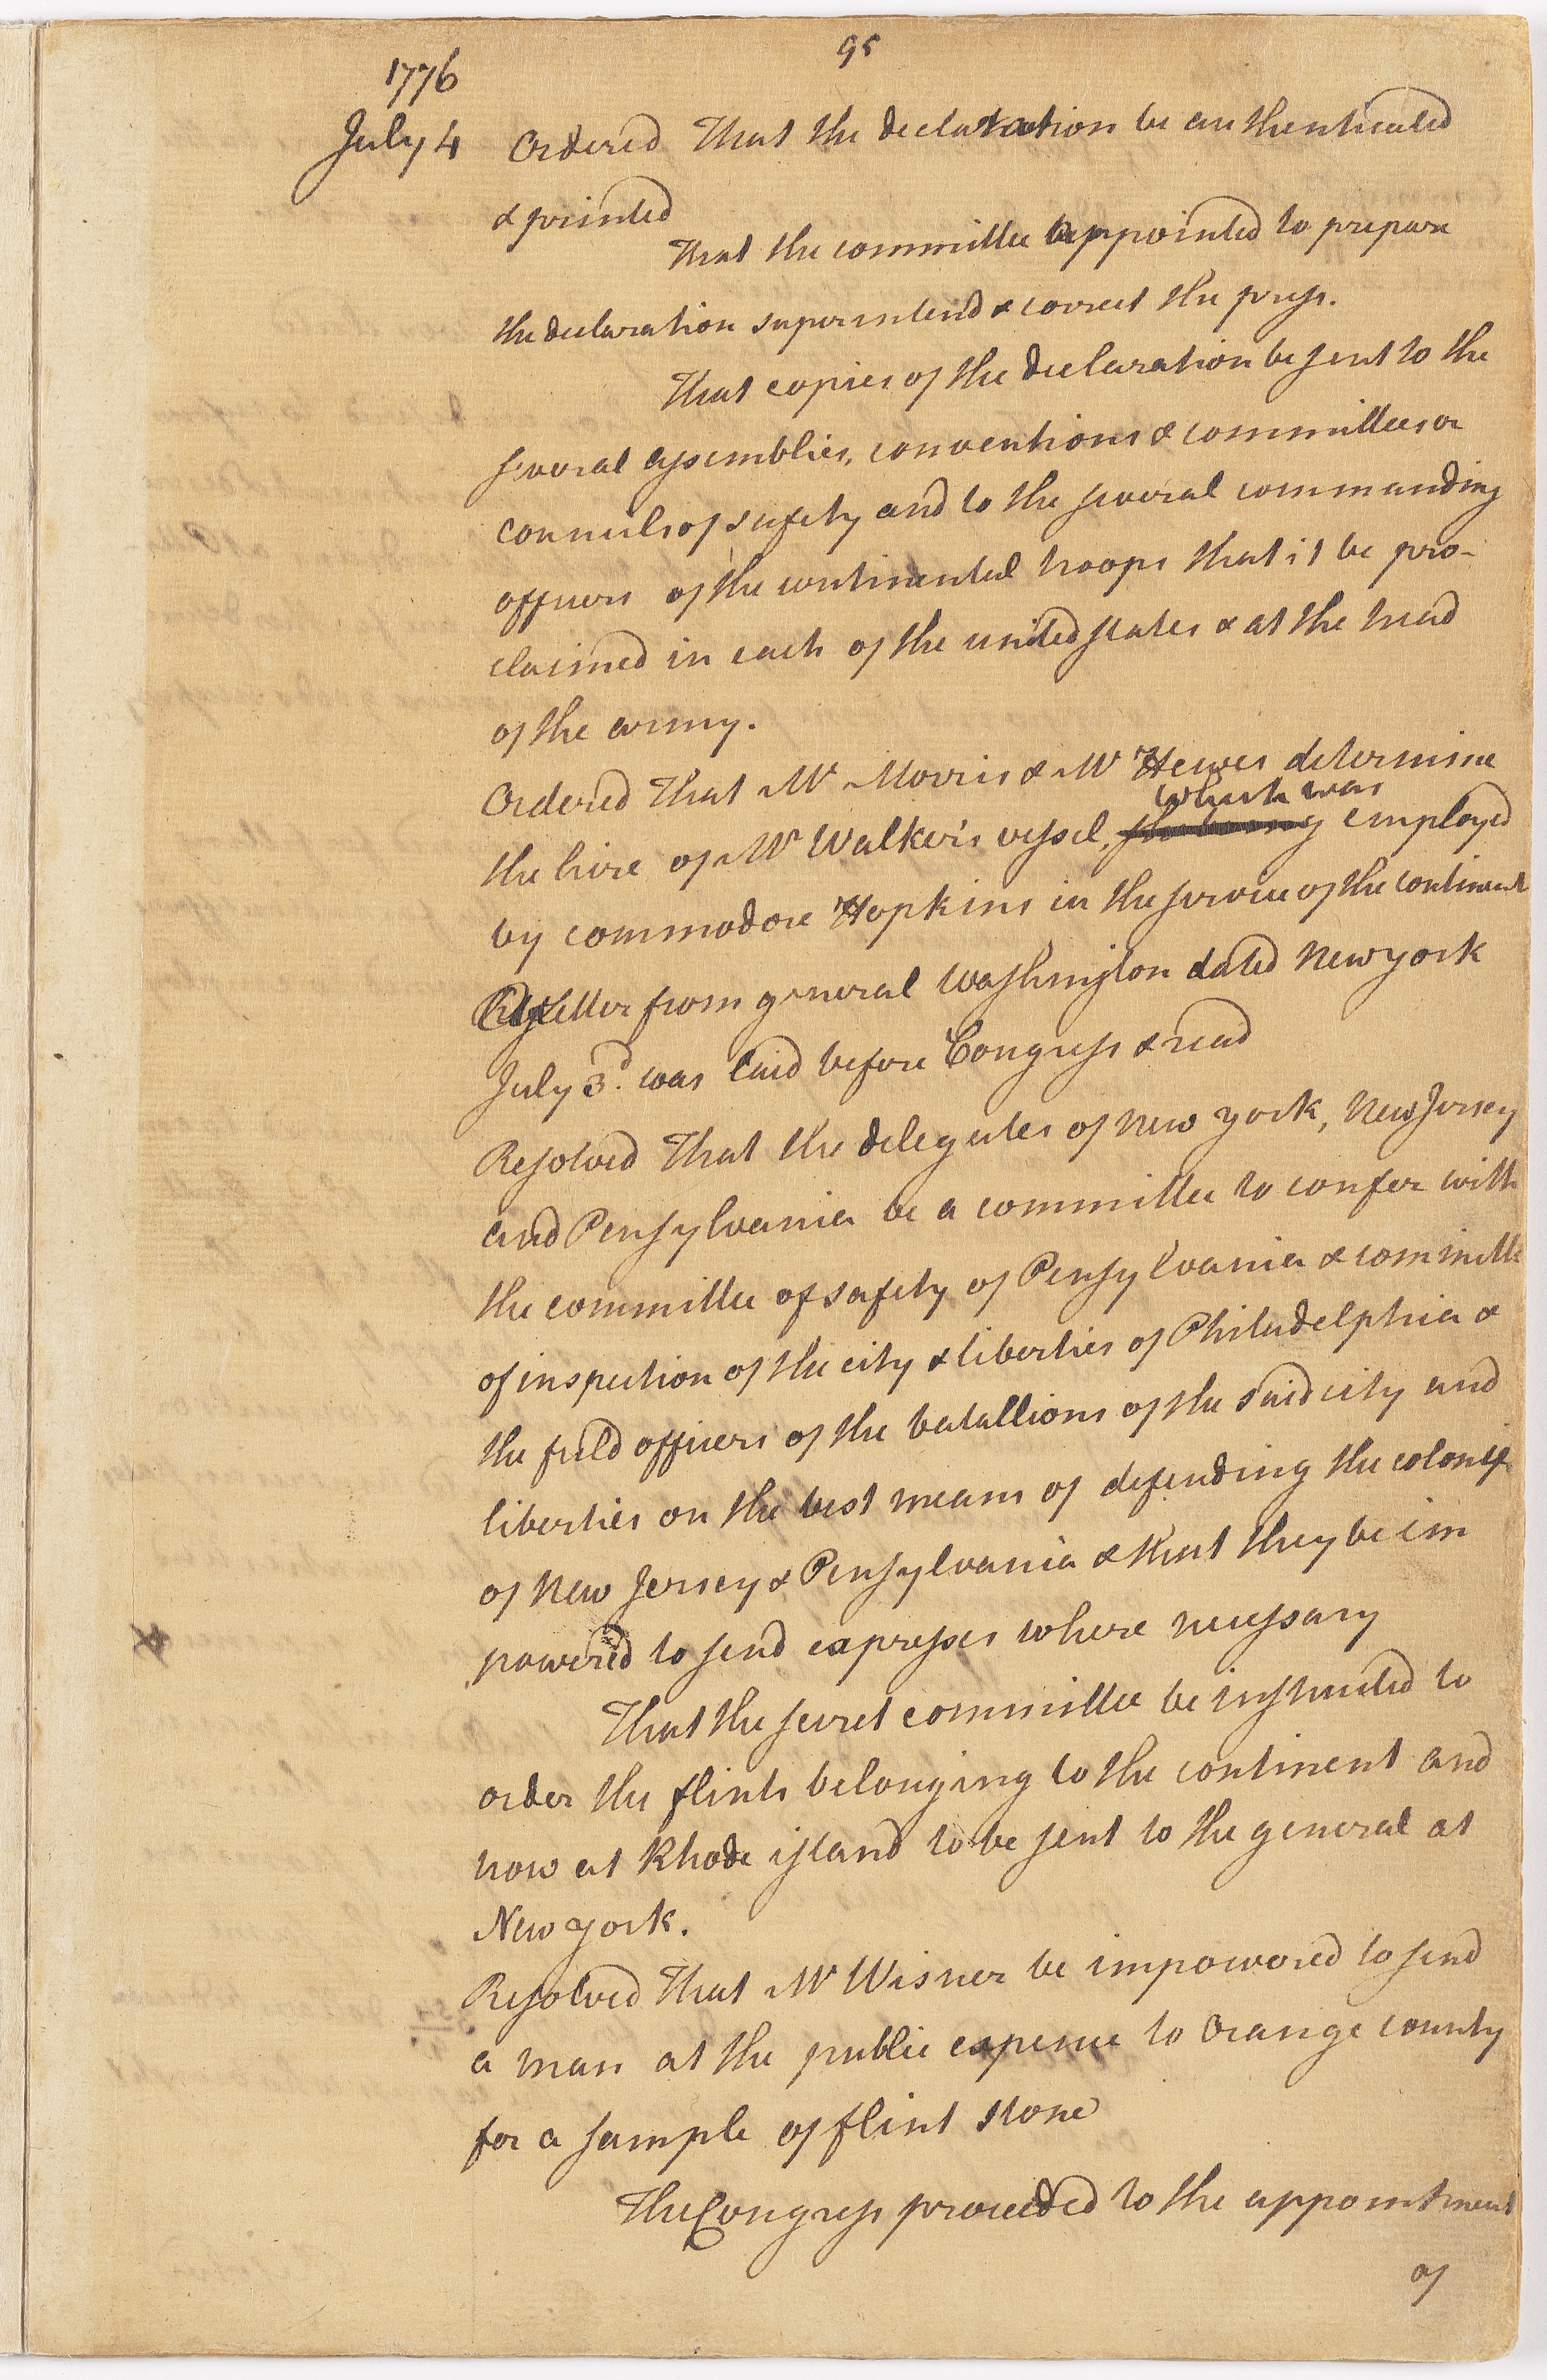 95
1776
July 4
Ordered That the declaration be authenticated
& printed
That the committee appointed to prepare
the declaration superintend & correct the press.
That copies of the declaration be sent to the
several assemblies, conventions & committees or
councils of safety and to the several commanding
officers of the continental troops that it be pro-
claimed in each of the united states & at the head
of the army.
Ordered That Mr Morris & Mr Hewes determine
which was
the hire of Mr Walker's vessel, employed
by commodore Hopkins in the service of the continent
letter from general Washington dated New york
July 3d. was laid before Congress & read
Resolved That the delegates of New york, New Jersey
and Pensylvania be a committee to confer with
the committee of safety of Pensylvania & committee
of inspection of the city & liberties of Philadelphia &
the field officers of the batallions of the said city and
liberties on the best means of defending the colonies
of New Jersey & Pensylvania & that they be im
powered to send expresses where necessary
That the secret committee be instructed to
order the flints belonging to the continent and
now at Rhode island to be sent to the general at
New york.
Resolved That Mr Wisner be impowered to send
a man at the public expence to Orange county
for a sample of flint stone
The Congress proceeded to the appointment
of